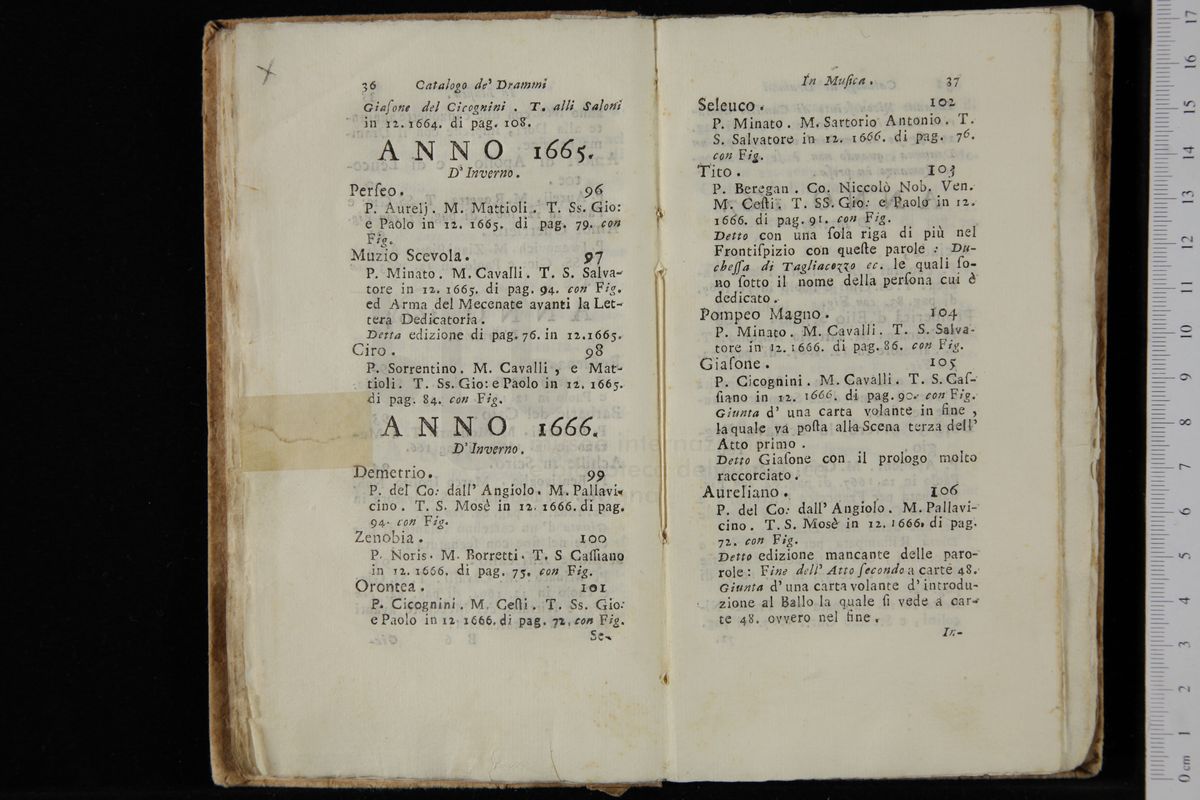 36 Catalogo de' Drammi
Giaſone del Cicognini . T. alli Saloni
in 12. 1664. di pag. 108.
ANNO 1665.
D' Inverno .
Perſeo . 96
P. Aurelj . M. Mattioli . T. Ss. Gio:
e Paolo in 12. 1665. di pag. 79. con
Fig.
Muzio Scevola . 97
P. Minato . M. Cavalli . T. S. Salva-
tore in 12. 1665. di pag. 94. con Fig.
ed Arma del Mecenate avanti la Let-
tera Dedicatoria .
Detta edizione di pag. 76. in 12. 1665.
Ciro . 98
P. Sorrentino . M. Cavalli , e Mat-
tioli . T. Ss. Gio: e Paolo in 12. 1665.
di pag. 84. con Fig.
ANNO 1666.
D' Inverno .
Demetrio . 99
P. del Co: dall' Angiolo . M. Pallavi-
cino . T. S. Mosè in 12. 1666. di pag.
94. con Fig.
Zenobia . 100
P. Noris . M. Borretti . T. S Caſſiano
in 12. 1666. di pag. 75. con Fig.
Orontea . 101
P. Cicognini . M. Ceſti . T. Ss. Gio:
e Paolo in 12 1666. di pag. 72. con Fig.
Se-
In Muſica . 37
Seleuco . 102
P. Minato . M. Sartorio Antonio . T.
S. Salvatore in 12. 1666. di pag. 76.
con Fig.
Tito . 103
P. Beregan . Co. Niccolò Nob. Ven.
M. Ceſti . T. SS. Gio: e Paolo in 12.
1666. di pag. 91. con Fig.
Detto con una ſola riga di più nel
Frontiſpizio con queſte parole : Du-
cheſſa di Tagliacozzo ec. le quali ſo-
no ſotto il nome della perſona cui è
dedicato .
Pompeo Magno . 104
P. Minato . M. Cavalli . T. S. Salva-
tore in 12. 1666. di pag. 86. con Fig.
Giaſone . 105
P. Cicognini . M. Cavalli . T. S. Caſ-
ſiano in 12. 1666. di pag. 90. con Fig.
Giunta d' una carta volante in fine ,
la quale va poſta alla Scena terza dell'
Atto primo .
Detto Giaſone con il prologo molto
raccorciato .
Aureliano . 106
P. del Co: dall' Angiolo . M. Pallavi-
cino . T. S. Mosè in 12. 1666. di pag.
72. con Fig.
Detto edizione mancante delle paro-
role : Fine dell' Atto ſecondo a carte 48.
Giunta d' una carta volante d' introdu-
zione al Ballo la quale ſi vede a car-
te 48. ovvero nel fine .
In-
0 cm 1 2 3 4 5 6 7 8 9 10 11 12 13 14 15 16 17